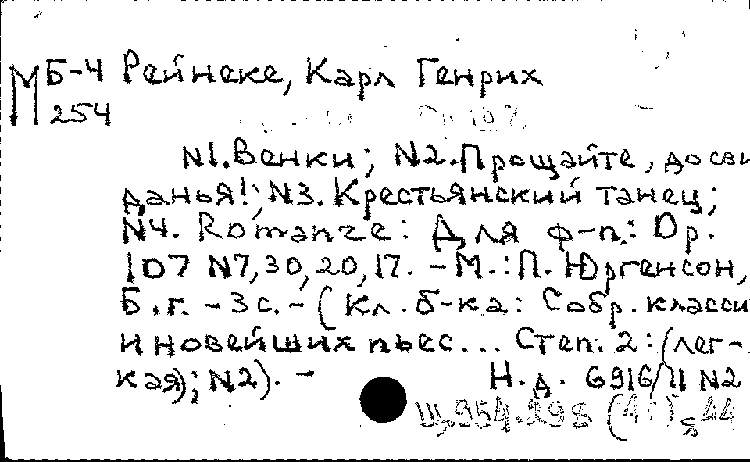 М Б-4 Рейнеке, Карл Генрих
254
N1. Венки; N2. Прощайте, до сви
данья!; N3. Крестьянский танец;
N4. Romanze: Для ф-п.: Op.
107 N7, 30, 20, 17. - М.: П. Юргенсон,
Б.г. - 3 с. - (Кл. б-ка: Собр. класси
и новейших пьес... Степ. 2: (лег-
кая); N2). -
Н.д. 6916/11 N2